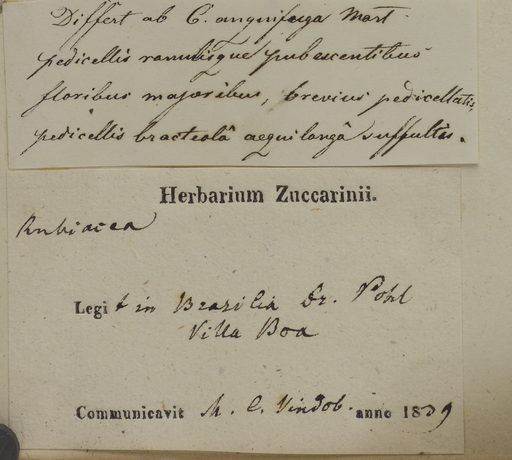 Differt ab C. anguifuga Mart.
pedicellis ramulisque pubescentibus
floribus majoribus, brevius pedicellatis,
pedicellis bracteolâ aequilongâ suffultis.
Herbarium Zuccarinii.
Rubiacea
Legit in Brasilia Dr. Pohl
Villa Boa
Communicavit M. C. Vindob. anno 1839